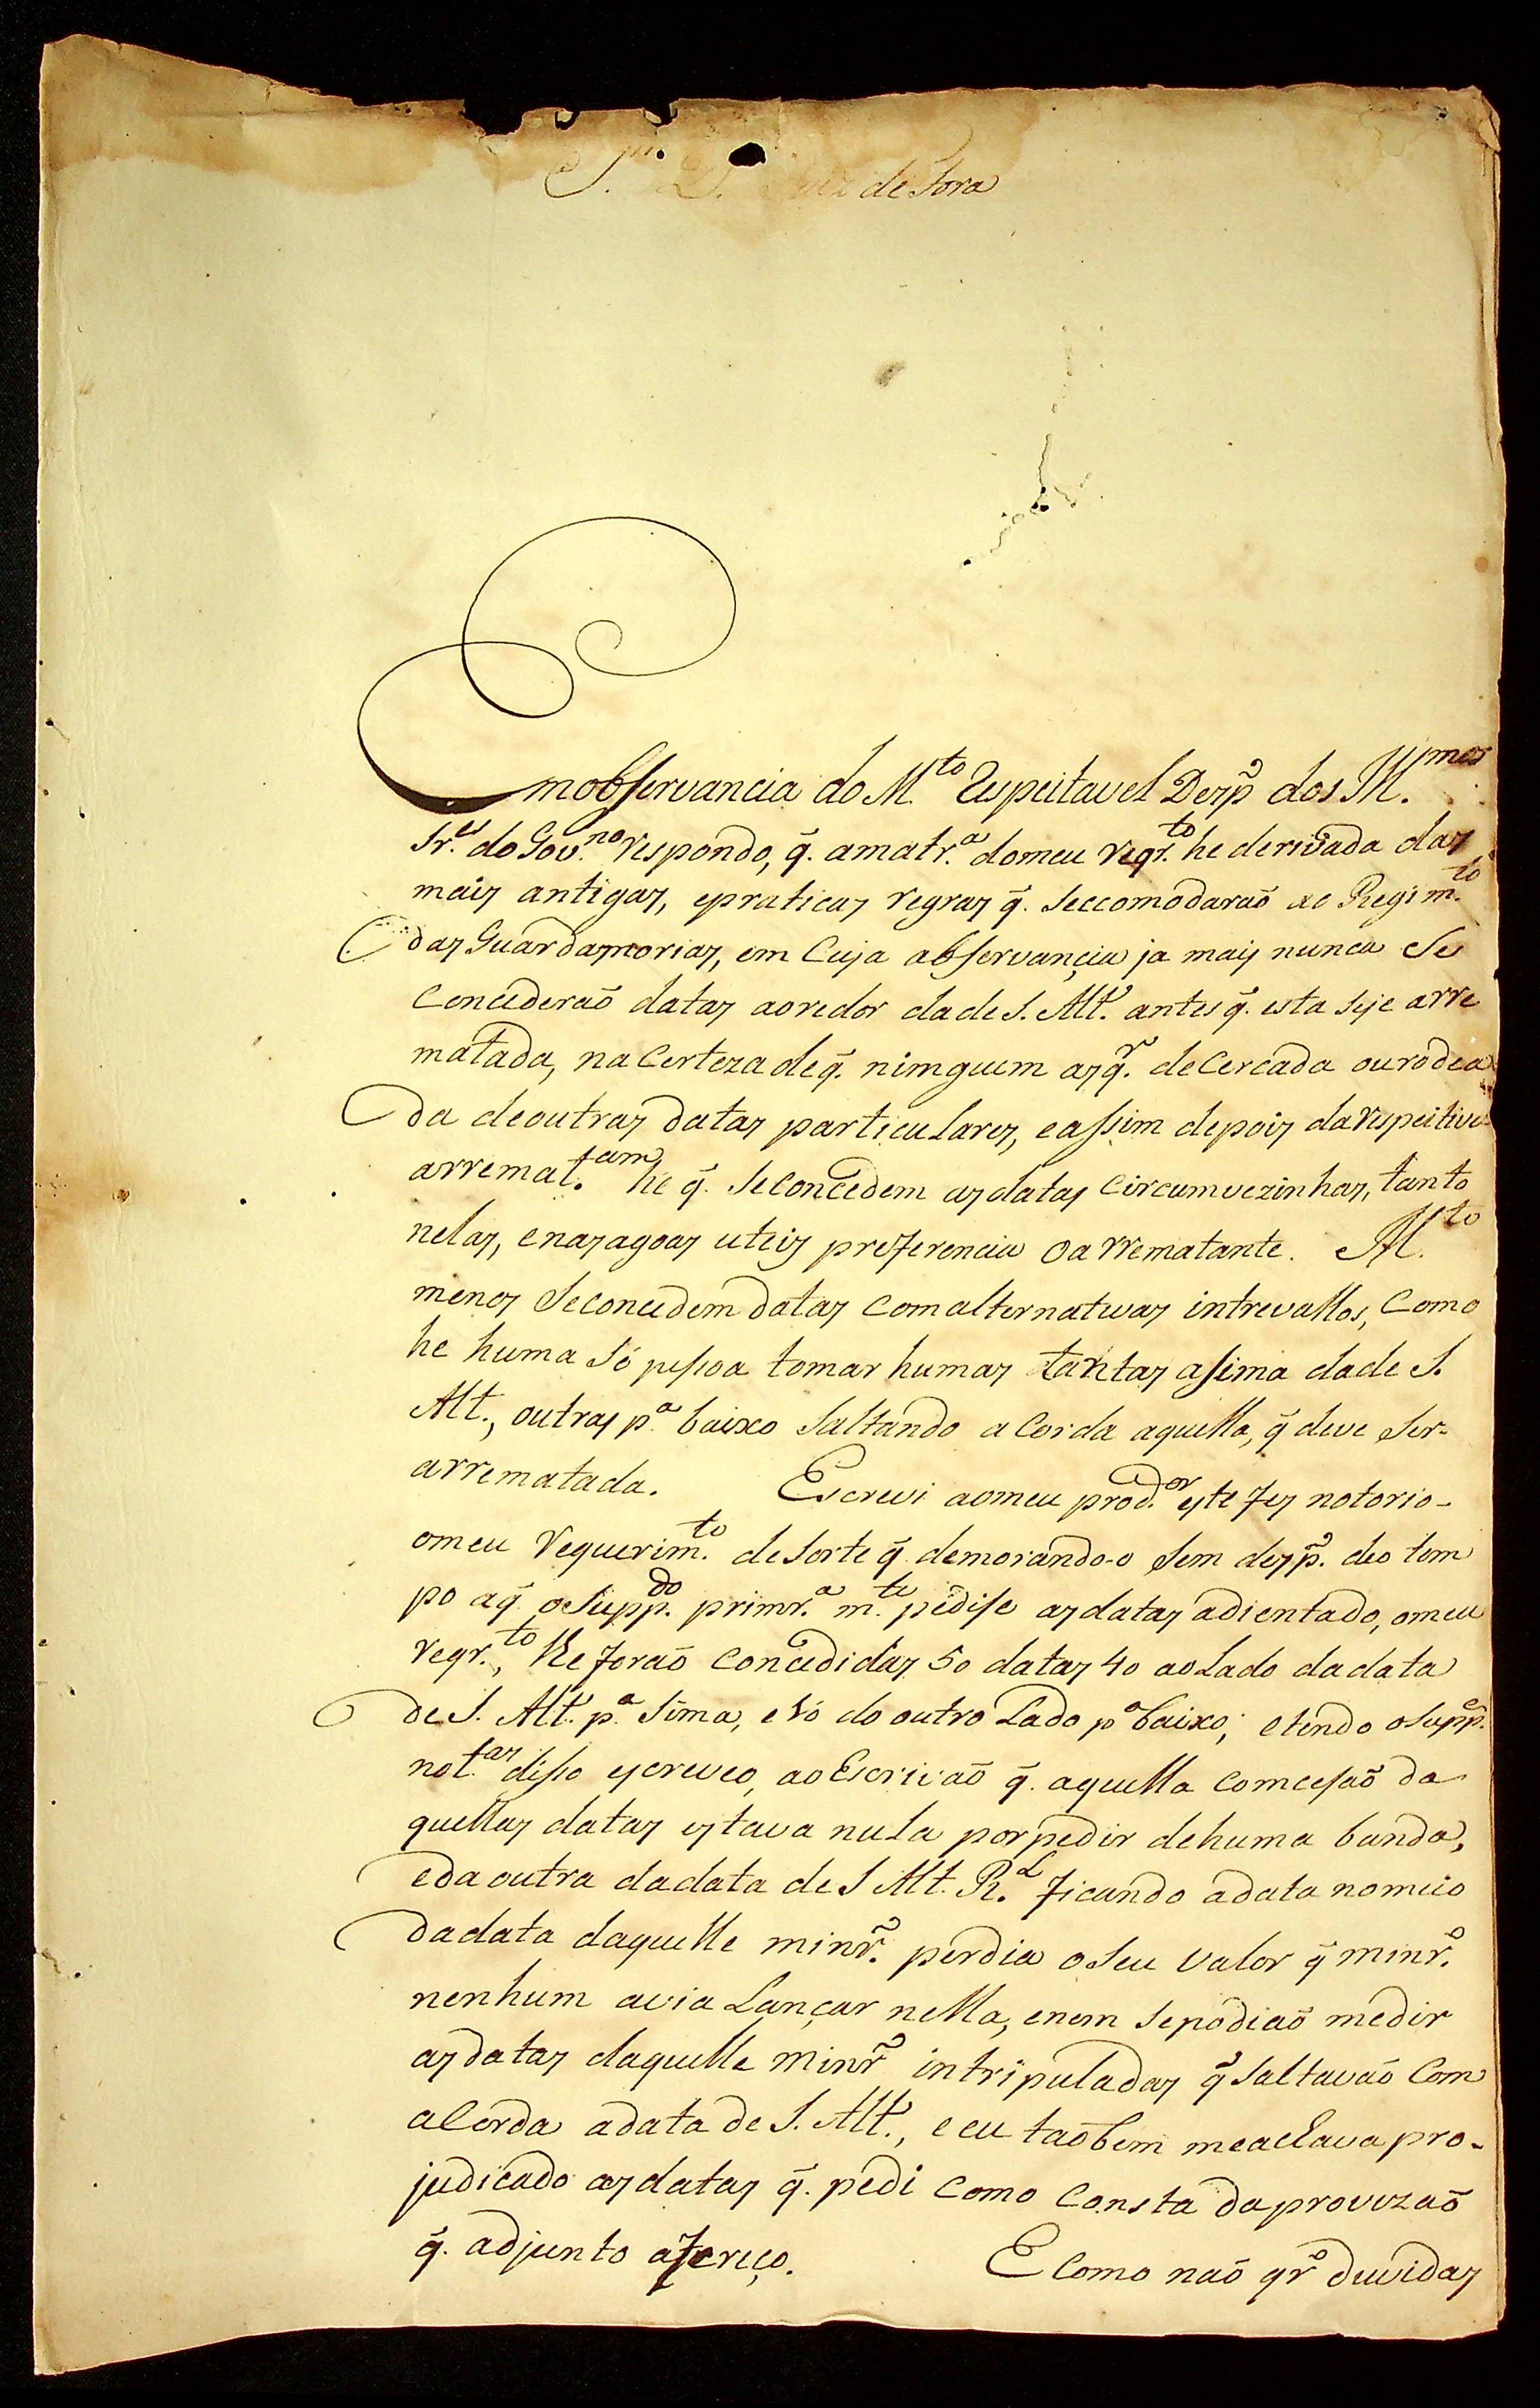 S.or D. Juiz de Fora
Em obsservancia do M.to Respeitavel Desp.o dos Ill.mos
Sr.es do Gov.no respondo, q̃. a matr.a do meu reqr.to he derivada das
mais antigas, e praticas regras q̃. se ecomodaraõ ao Regim.to
das Guardamorias, em cuja absservançia ja mais nunca se
concederaõ datas ao redor da de S. Alt.a antes q̃. esta seje arre
matada, na certeza de q̃. nimguem as q̃.r de cercada ou rodea
da de outras datas particulares, e assim depois da respeitiva
arremat.am he q̃. se concedem as datas circumvezinhas, tanto
nelas, e nas agoas uteis preferencia o arrematante. M.to
menos se concedem datas com alternativas intrevallos, como
he huma só pessoa tomar humas tantas assima da de S.
Alt., outras p.a baixo saltando a corda aquella, q̃ deve ser
arrematada. Escrevi ao meu prod.or este fes notorio
o meu requerim.to de sorte q̃ demorando-o sem desp.o deo tem
po a q̃ o Supp.do primr.a m.te pedise as datas adientado, o meu
reqr.to, lhe foraõ concedidas 50 datas 40 ao lado da data
de S. Alt.a p.a sima, e 10 do outro lado p.a baixo; e tendo o Supp.e
not.as disso escreveo, ao Escrivaõ q̃. aquella comcesaõ da
quellas datas estava nula por pedir de huma banda,
e da outra da data de S Alt. R.l ficando a data no meio
da data daquelle minr.o perdia o seu valor q̃ minr.o
nenhum avia lançar nella, e nem se podiaõ medir
as datas daquelle minr.o intripuladas q̃ saltavaõ com
a corda a data de S. Alt.a, e eu taõbem me aclava pro-
judicado as datas q̃. pedi como consta da provizaõ
q̃. adjunto ofereço. E como naõ qr.o duvidas